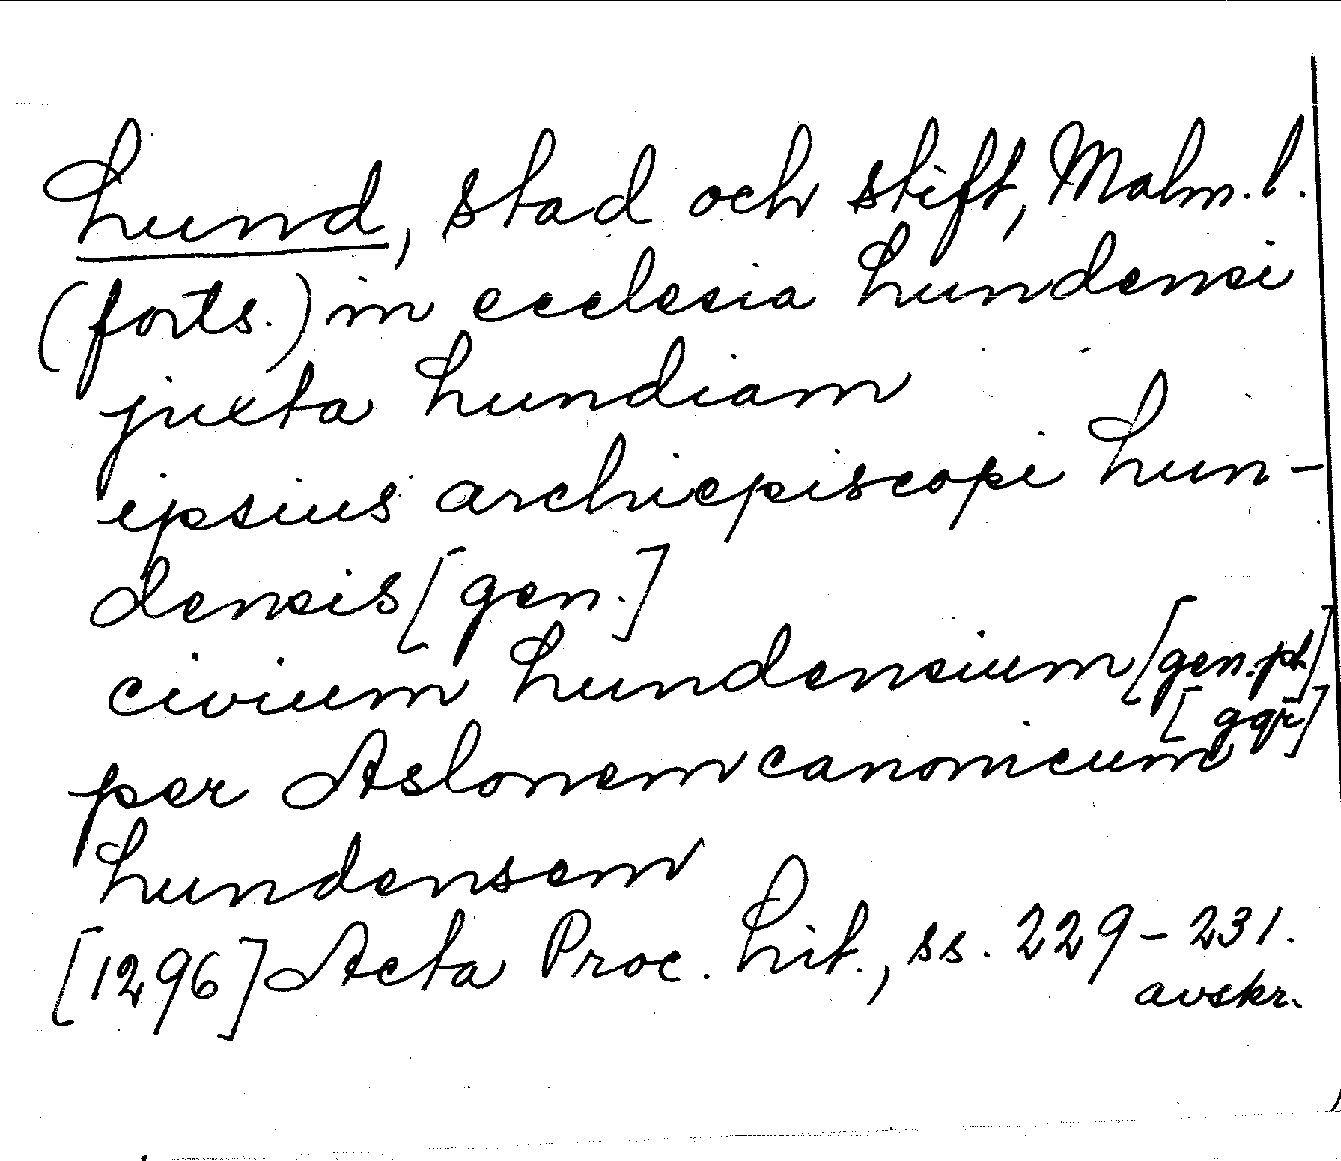 Lund, stad och stift, Malm. l.
(forts.) in ecclesia Lundensi
juxta Lundiam
ipsius archiepiscopi Lun-
densis [gen.]
civium Lundensium [gen. pl.]
[ggr]
per Aslonem canonicum
Lundensem
[1296] Acta Proc. Lit., ss. 229-231.
avskr.